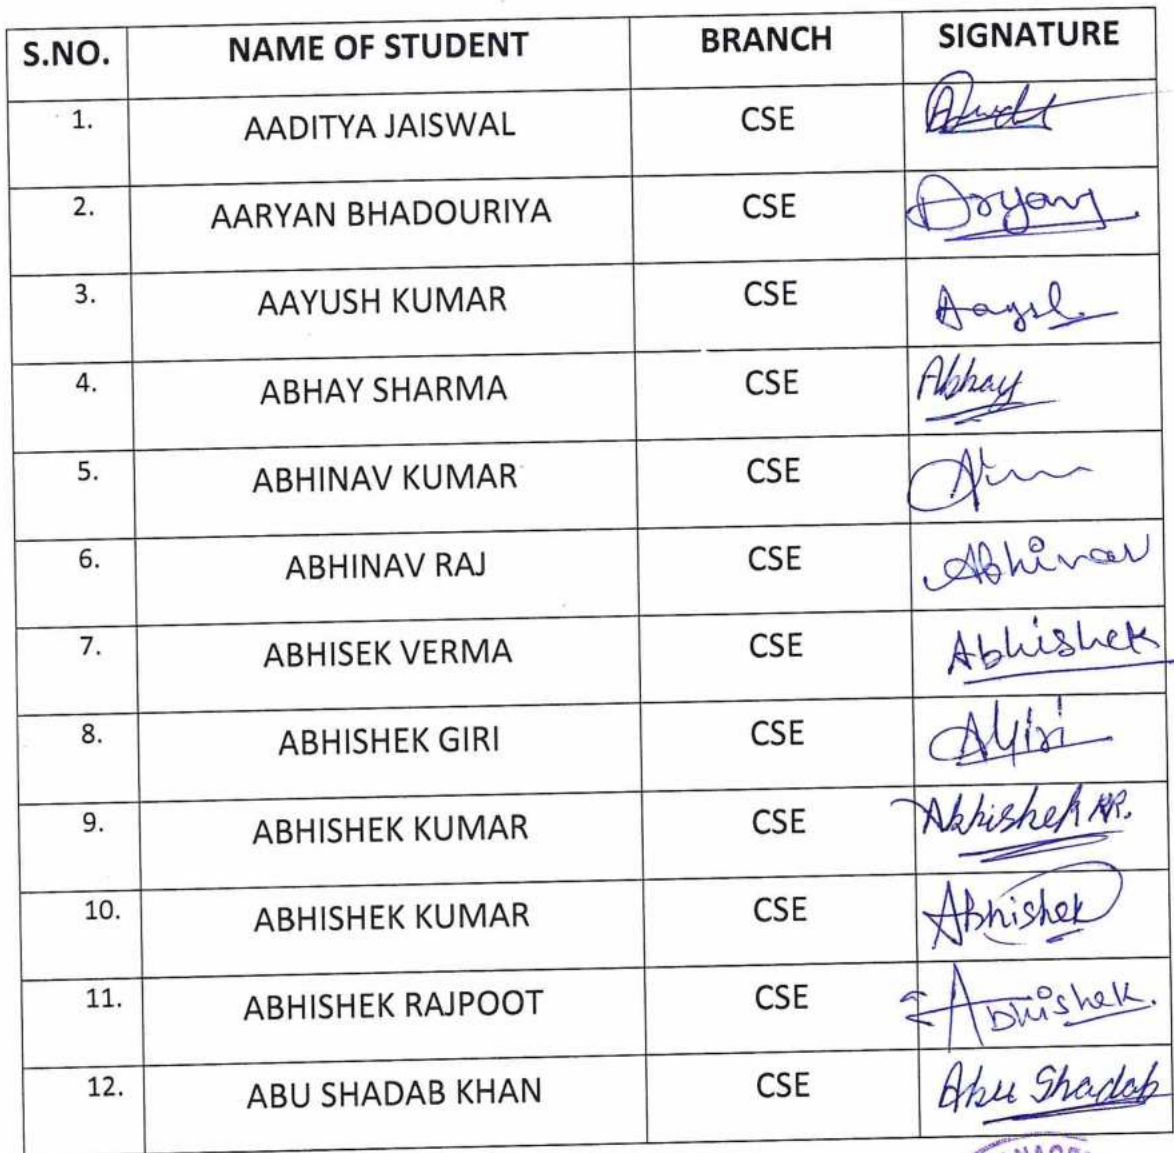 S.NO. NAME OF STUDENT BRANCH SIGNATURE
1. AADITYA JAISWAL CSE
2. AARYAN BHADOURIYA CSE Aryan
3. AAYUSH KUMAR CSE
4. ABHAY SHARMA CSE Abhay
5. ABHINAV KUMAR CSE
6. ABHINAV RAJ CSE Abhinav
7. ABHISEK VERMA CSE Abhishek
8. ABHISHEK GIRI CSE AGiri
9. ABHISHEK KUMAR CSE Abhishek KR.
10. ABHISHEK KUMAR CSE Abhishek
11. ABHISHEK RAJPOOT CSE Abhishek.
12. ABU SHADAB KHAN CSE Abu Shadab